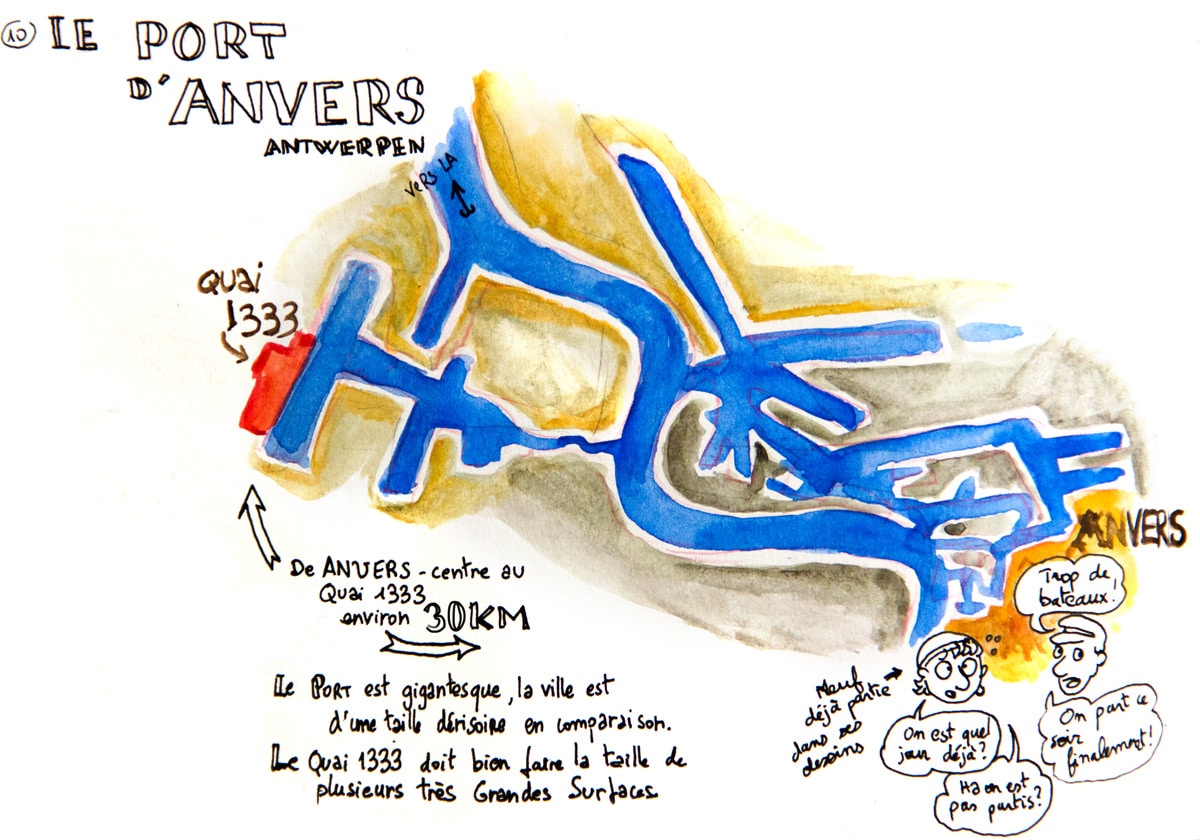 10 LE PORT
D'ANVERS
ANTWERPEN
VERS LA
QUAI
1333
De ANVERS - centre au
Quai 1333
environ 30KM
Le PORT est gigantesque, la ville est
d'une taille dérisoire en comparaison.
Le Quai 1333 doit bien faire la taille de
plusieurs très Grandes Surfaces
ANVERS
Trop de
bateaux!
Meuf
déjà partie
dans ses
dessins
On est quel
jour déjà?
Ha on est
pas partis?
On part ce
soir
finalement!